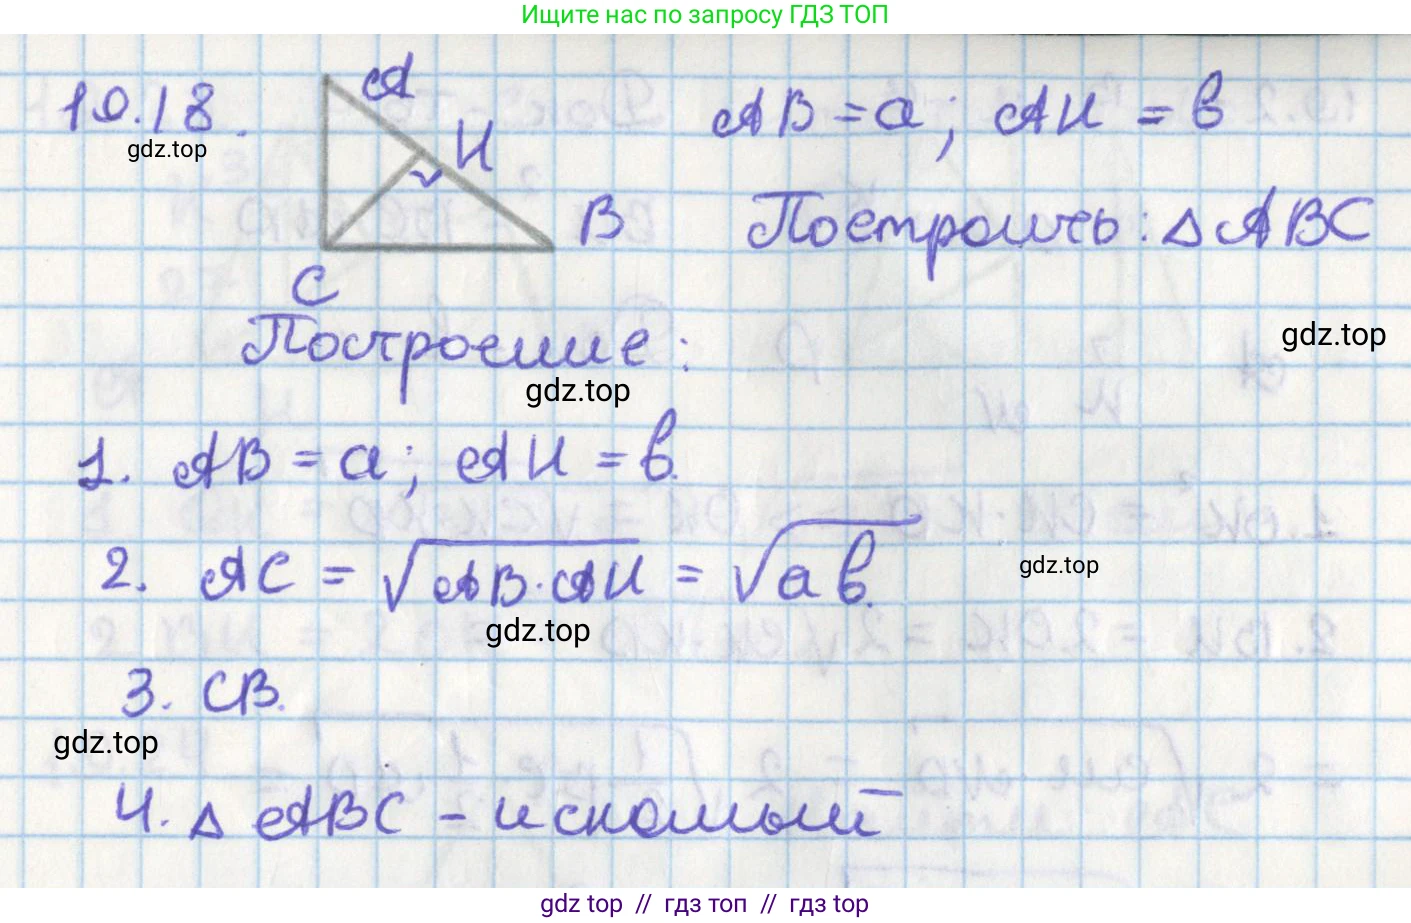 Ищите нас по запросу ГДЗ ТОП
19.18.
gdz.top
A
H
B
C
AB = a; AH = b
Построить: △ ABC
gdz.top
Построение:
gdz.top
1. AB = a; AH = b.
2. AC = √AB·AH = √ab.
gdz.top
gdz.top
3. CB.
gdz.top
4. △ ABC - искомый
gdz top // гдз топ // gdz top